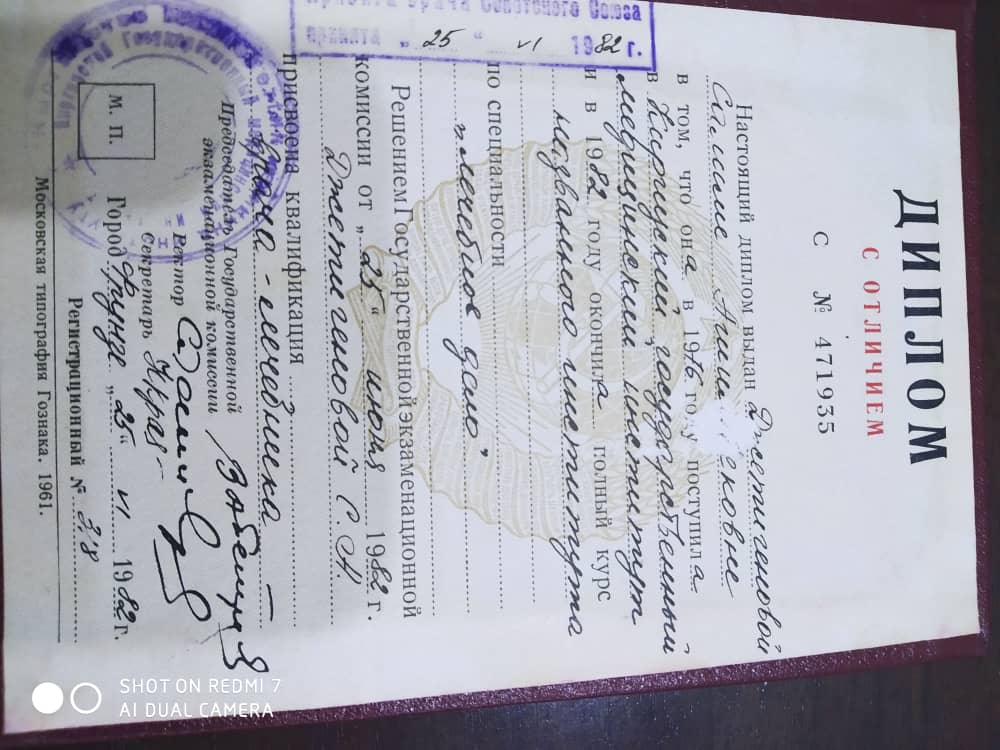 Присяга врача Советского Союза
принята „25“ VI 1982 г.
ДИПЛОМ
С ОТЛИЧИЕМ
С № 471935
Настоящий диплом выдан Джетигеновой
в том, что он а в 1976 году поступил а
в Киргизский государственный
медицинский институт
и в 1982 году окончил а полный курс
названного института
по специальности
„лечебное дело“
Решением Государственной экзаменационной
комиссии от „25“ июня 1982 г.
Джетигеновой С. А.
присвоена квалификация
врача-лечебника
Председатель Государственной
экзаменационной комиссии
Ректор
Секретарь
М. П.
Город Фрунзе „25“ VI 1982 г.
Регистрационный № 318
Московская типография Гознака. 1961.
SHOT ON REDMI 7
AI DUAL CAMERA